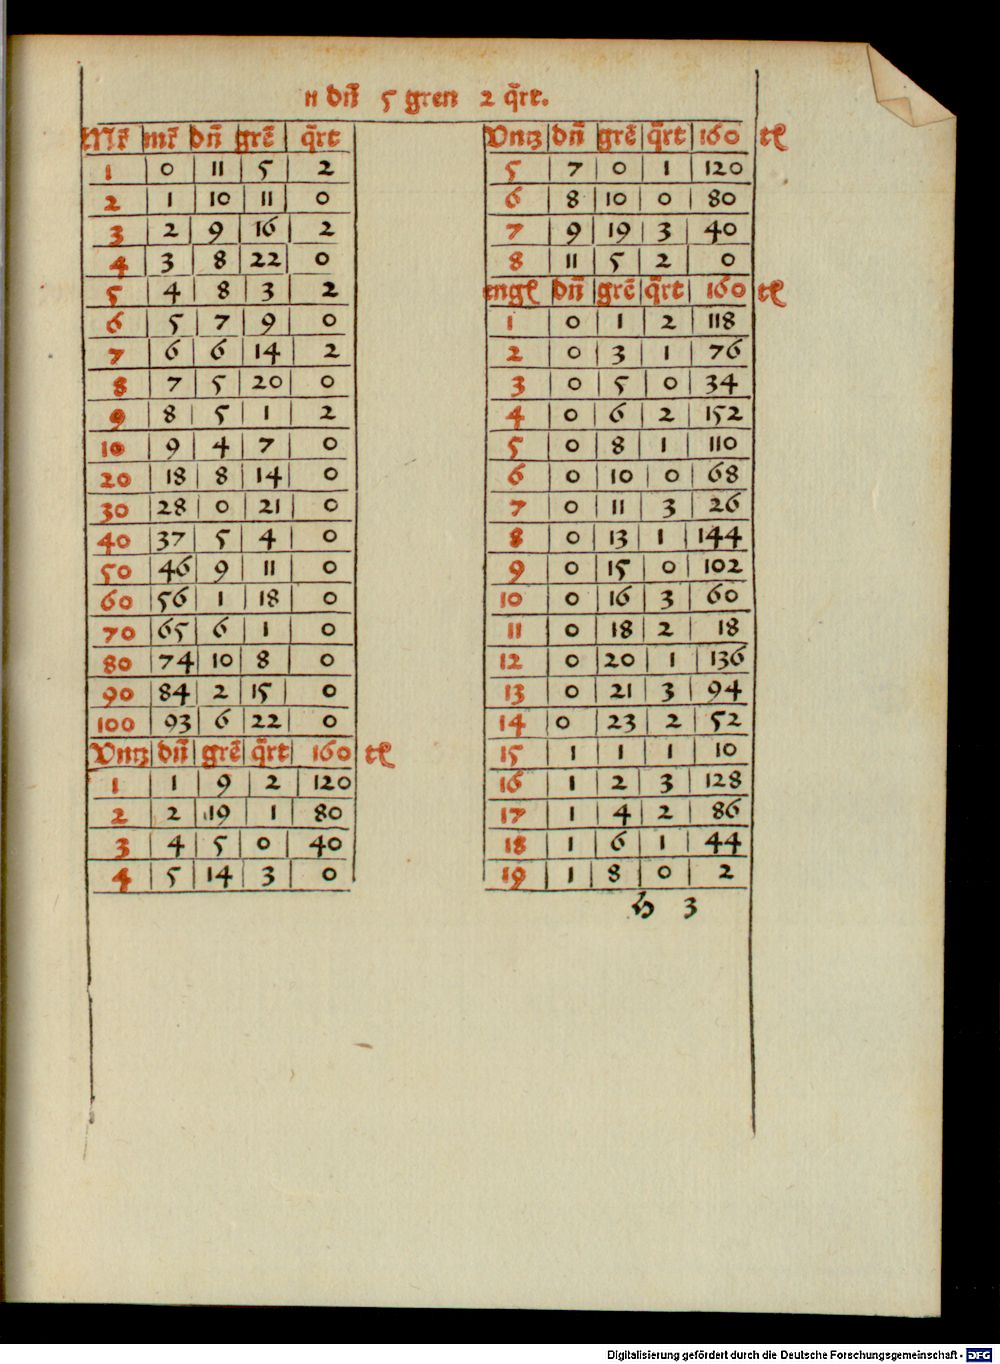 11 dn̄ 5 gren 2 q̄rt.
Mr̄ mr̄ dn̄ grē q̄rt
1 0 11 5 2
2 1 10 11 0
3 2 9 16 2
4 3 8 22 0
5 4 8 3 2
6 5 7 9 0
7 6 6 14 2
8 7 5 20 0
9 8 5 1 2
10 9 4 7 0
20 18 8 14 0
30 28 0 21 0
40 37 5 4 0
50 46 9 11 0
60 56 1 18 0
70 65 6 1 0
80 74 10 8 0
90 84 2 15 0
100 93 6 22 0
Vntz dn̄ grē q̄rt 160 tl
1 1 9 2 120
2 2 19 1 80
3 4 5 0 40
4 5 14 3 0
Vntz dn̄ grē q̄rt 160 tl
5 7 0 1 120
6 8 10 0 80
7 9 19 3 40
8 11 5 2 0
engl dn̄ grē q̄rt 160 tl
1 0 1 2 118
2 0 3 1 76
3 0 5 0 34
4 0 6 2 152
5 0 8 1 110
6 0 10 0 68
7 0 11 3 26
8 0 13 1 144
9 0 15 0 102
10 0 16 3 60
11 0 18 2 18
12 0 20 1 136
13 0 21 3 94
14 0 23 2 52
15 1 1 1 10
16 1 2 3 128
17 1 4 2 86
18 1 6 1 44
19 1 8 0 2
h 3
Digitalisierung gefördert durch die Deutsche Forschungsgemeinschaft - DFG